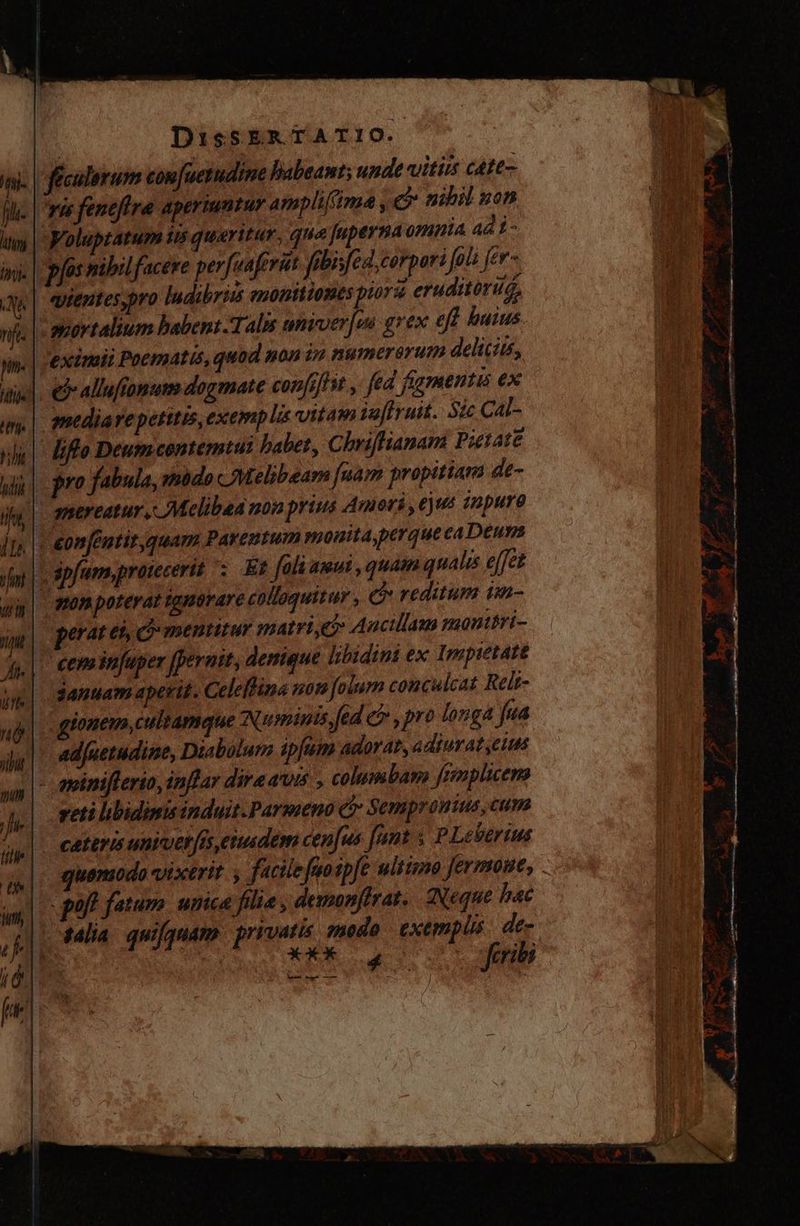 DISSERTATIO.
ſéculorum conſuetudine habeant; unde vitiis cate-
ris feneſtræ aperiuntur ampliſſima, & nihil non
Voluptatum iis quæritur, quæ ſuperna omnia ad i-
pſos nihil facere perſuaſerūt. ſibi ſed, corpori ſoli ſer-
vientes, pro ludibriis monitiones piorū eruditorūq,
mortalium habent. Talis univerſus grex eſt huius
eximii Poematis, quod non in numerorum deliciis,
& alluſionum dogmate conſiſtit, ſed figmentis ex
media repetitis, exemplis vitam inſtruit. Sic Cal-
liſto Deum contemtui habet, Chriſtianam Pietatē
pro fabula, modo Melibæam ſuam propitiam de-
mereatur, Melibæa non prius Amori, ejus inpuro
conſentit, quam Parentum monita, perque ea Deum
ipſum, proiecerit: Et ſoli amui, quam qualis eſſet
non poterat ignorare colloquitur, & reditum im-
perat ei, & mentitur matri, & Ancillam monitri-
cem inſuper ſpernit, denique libidini ex Impietate
januam aperit. Celeſtina non ſolum conculcat Reli-
gionem, cultamque Numinis, ſed &, pro longa ſua
adſuetudine, Diabolum ipſum adorat, adiurat, eius
miniſterio, inſtar diræ avis, columbam ſimplicem
veti libidinis induit. Parmeno & Sempronius, cum
cateris univerſis, eiusdem cenſus ſunt; PLeberius
quomodo vixerit, facile ſuo ipſe ultimo ſermone,
poſt fatum unicæ filiæ, demonſtrat. Neque hac
talia quiſquam privatis modo exemplis de-
*** 4 ſcribi